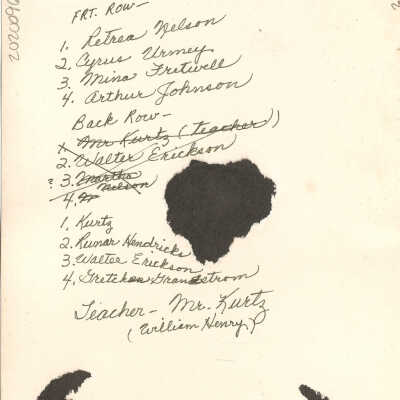 FRT. ROW-
1. Petrea Nelson
2. Cyrus Urmey
3. Mina Fretwell
4. Arthur Johnson
Back Row-
1. Mr Kurtz (teacher)
2. Walter Erickson
? 3. Martha Nelson
4. M
1. Kurtz
2. Runar Hendricks
3. Walter Erickson
4. Gretchen Grandstrom
Teacher- Mr. Kurtz
(William Henry?)